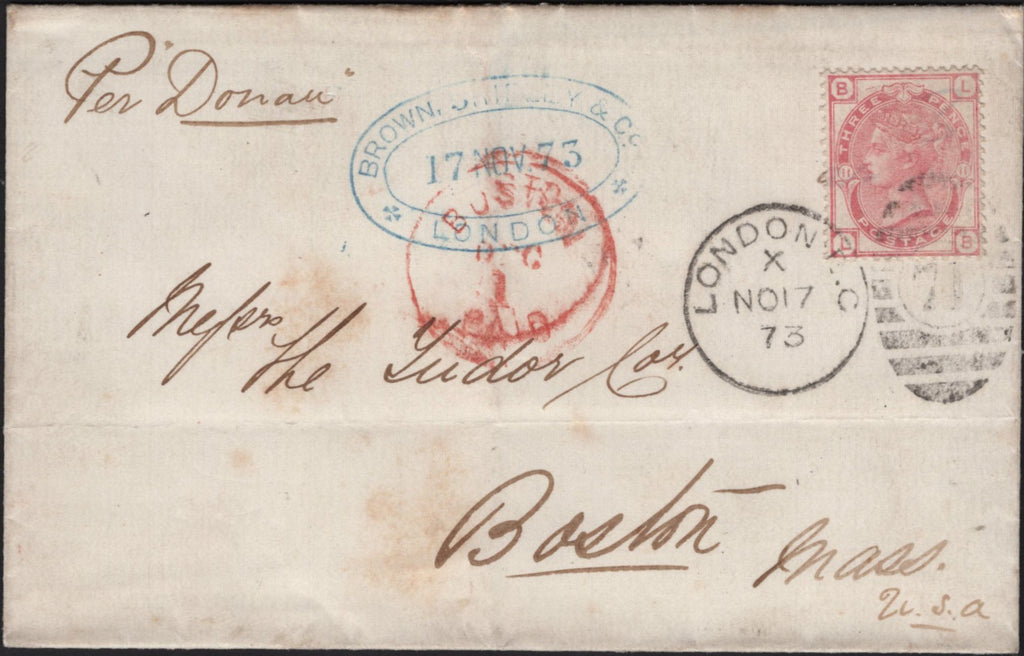 Per "Donau"
BROWN, SHIPLEY & Co.
17 NOV 73
LONDON
BOSTON
DEC
1
PAID
B L
THREE PENCE
11 11
POSTAGE
L B
LONDON E.C
X
NO 17
73
71
Messrs
The Tudor Coy.
Boston
Mass.
U.S.A